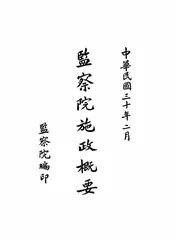 中華民國三十年二月
監察院施政概要
監察院編印